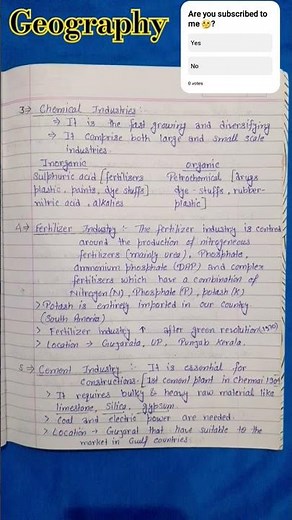 Geography
Are you subscribed to
me🤔?
Yes
No
0 votes
3→ Chemical Industries :-
→ It is the fast growing and diversifying
→ It comprise both large and small scale
industries.
Inorganic
Organic
Sulphuric acid [fertilisers
plastic, paints, dye stuffs]
nitric acid, alkalies
Petrochemical [drugs
dye-stuffs, rubber-
plastic]
4→ Fertilizer Industry :- The fertilizer industry is centred
around the production of nitrogeneous
fertilizers (mainly urea), Phosphate,
ammonium phosphate (DAP) and complex
fertilisers which have a combination of
Nitrogen (N), Phosphate (P), potash (K)
> Potash is entirely imported in our country
> Fertilizer Industry ↑ after green revolution
> Location → Gujarata, UP, Punjab Kerala.
5→ Cement Industry :- It is essential for
constructions. [1st cement plant in Chennai 1904
> It requires bulky & heavy raw material like
limestone, Silica, gypsum.
> Coal and electric power are needed
> Location → Gujarat that have suitable to the
market in Gulf countries